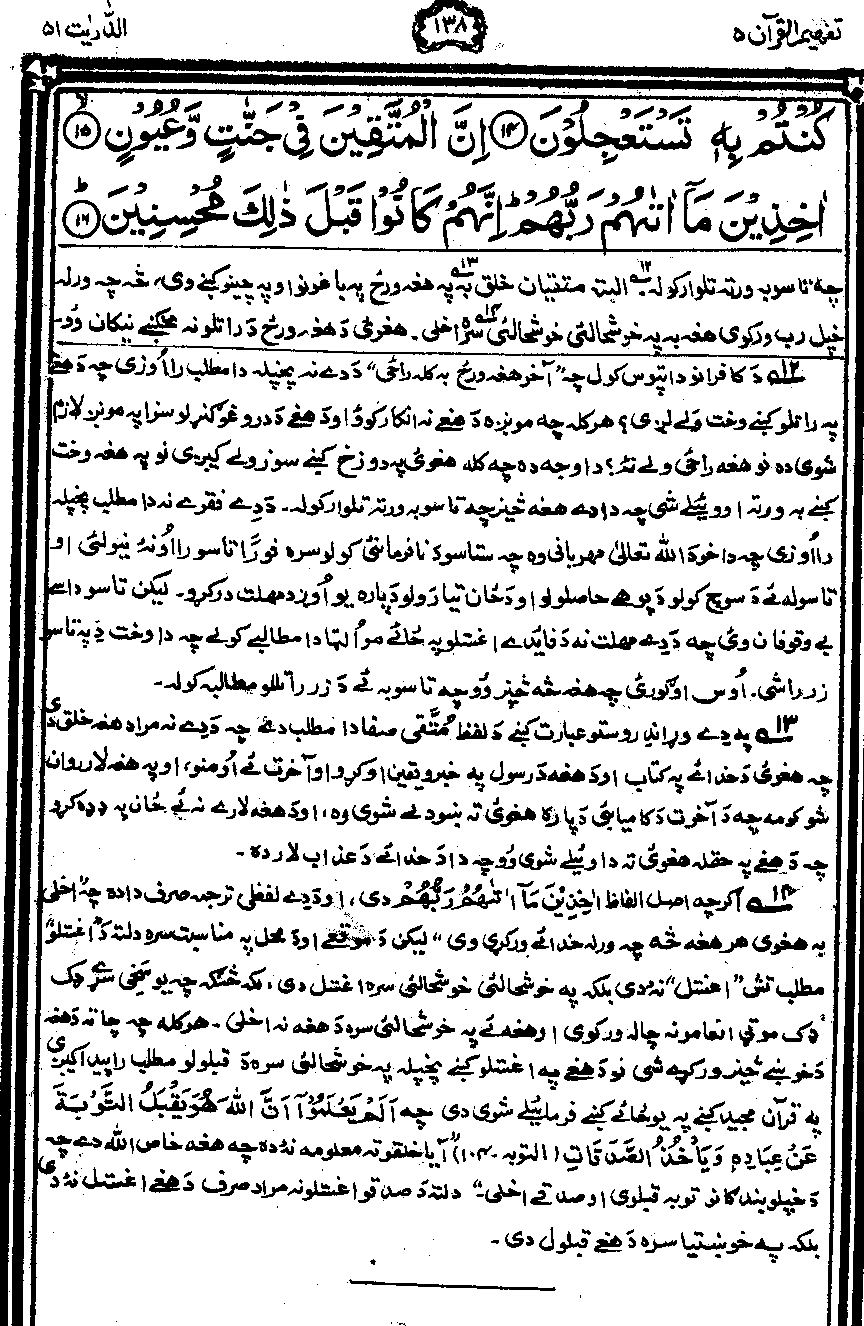 تفهيم القرآن ٥
١٣٨
الذّٰريٰت ٥١
كُنْتُمْ بِهٖ تَسْتَعْجِلُوْنَ ⑭ اِنَّ الْمُتَّقِيْنَ فِيْ جَنّٰتٍ وَّعُيُوْنٍ ⑮
اٰخِذِيْنَ مَآ اٰتٰىهُمْ رَبُّهُمْ ؕ اِنَّهُمْ كَانُوْا قَبْلَ ذٰلِكَ مُحْسِنِيْنَ ⑯
چه تاسو به ورته تلوار كوله ١٢ البته متقيان خلق به ١٣ په هغه ورځ په باغونو او په چينو كښے وى، څه چه ورله
خپل رب وركوى هغه به په خوشحالئ خوشحالئ ١٤ سره اخلى. هغوئ د هغه ورځ د راتلو نه مخكښے نيكان وو۔
١٢ د كافرانو دا تپوس كول چه "آخر هغه ورځ به كله راځى" د دے نه پخپله دا مطلب رااوزى چه د هغے
په راتلو كښے وخت ولے لږى؟ هركله چه مونږه د هغے نه انكار كوو او د هغے د دروغو ګنړلو سزا په مونږ لازم
شوى ده نو هغه راځى ولے نه؟ دا وجه ده چه كله هغوئ په دوزخ كښے سوزولے كيږى نو په هغه وخت
كښے به ورته اووئيلے شى چه دا دے هغه څيز چه تاسو به ورته تلوار كوله۔ د دے فقرے نه دا مطلب پخپله
رااوزى چه دا خو د الله تعالىٰ مهربانى وه چه ستاسو د نافرمانئ كولو سره فورًا تاسو رااونه نيولئ او
تاسو له ئے د سوچ كولو د پوهے حاصلولو او د ځان تيارولو دپاره يو اوږد مهلت دركړو۔ ليكن تاسو داسے
بے وقوفان وئ چه د دے مهلت نه د فايدے اغستلو په ځائے مو الټا دا مطالبے كولے چه دا وخت دِ په تاسو
زر راشى. اُوس اوګورئ چه هغه څه څيز وو چه تاسو به ئے د زر راتللو مطالبه كوله۔
١٣ په دے وړاندِ روستو عبارت كښے د لفظ مُتَّقى صفا دا مطلب دے چه د دے نه مراد هغه خلق دى
چه هغوئ د خدائے په كتاب او د هغه د رسول په خبرو يقين اوكړو او آخرت ئے اومنو، او په هغه لار روان
شو كومه چه د آخرت د كاميابئ دپاره هغوئ ته ښودلے شوى وه، او د هغه لارے نه ئے ځان په ډډه كړو
چه د هغے په حقله هغوئ ته دا وئيلے شوى وو چه دا د خدائے د عذاب لار ده۔
١٤ اګرچه اصل الفاظ اٰخِذِيْنَ مَآ اٰتٰىهُمْ رَبُّهُمْ دى، او د دے لفظى ترجمه صرف دا ده چه "اخلى
به هغوى هر هغه څه چه ورله خدائے وركړى وى" ليكن د موقعے او د محل په مناسبت سره دلته د "اغستلو"
مطلب تش "اغستل" نه دى بلكه په خوشحالئ خوشحالئ سره اغستل دى، لكه څنګه چه يو سخى سړے ډك
ډك موټى انعامونه چا له وركوى او هغه ئے په خوشحالئ سره د هغه نه اخلى۔ هركله چه چا ته د هغه
د خوښے څيز وركړے شى نو د هغے په اغستلو كښے پخپله په خوشحالئ سره د قبلولو مطلب راپيدا كيږى
په قرآن مجيد كښے په يو ځائے كښے فرمائيلے شوى دى چه اَلَمْ يَعْلَمُوْٓا اَنَّ اللهَ هُوَ يَقْبَلُ التَّوْبَةَ
عَنْ عِبَادِهٖ وَيَاْخُذُ الصَّدَقَاتِ (التوبه ۔١٠٤) "آيا خلقو ته معلومه نه ده چه هغه خاص الله دے چه
د خپلو بندګانو توبه قبلوى او صدقے اخلى۔" دلته د صدقو اغستلو نه مراد صرف د هغے اغستل نه دى
بلكه په خوښتيا سره د هغے قبلول دى۔